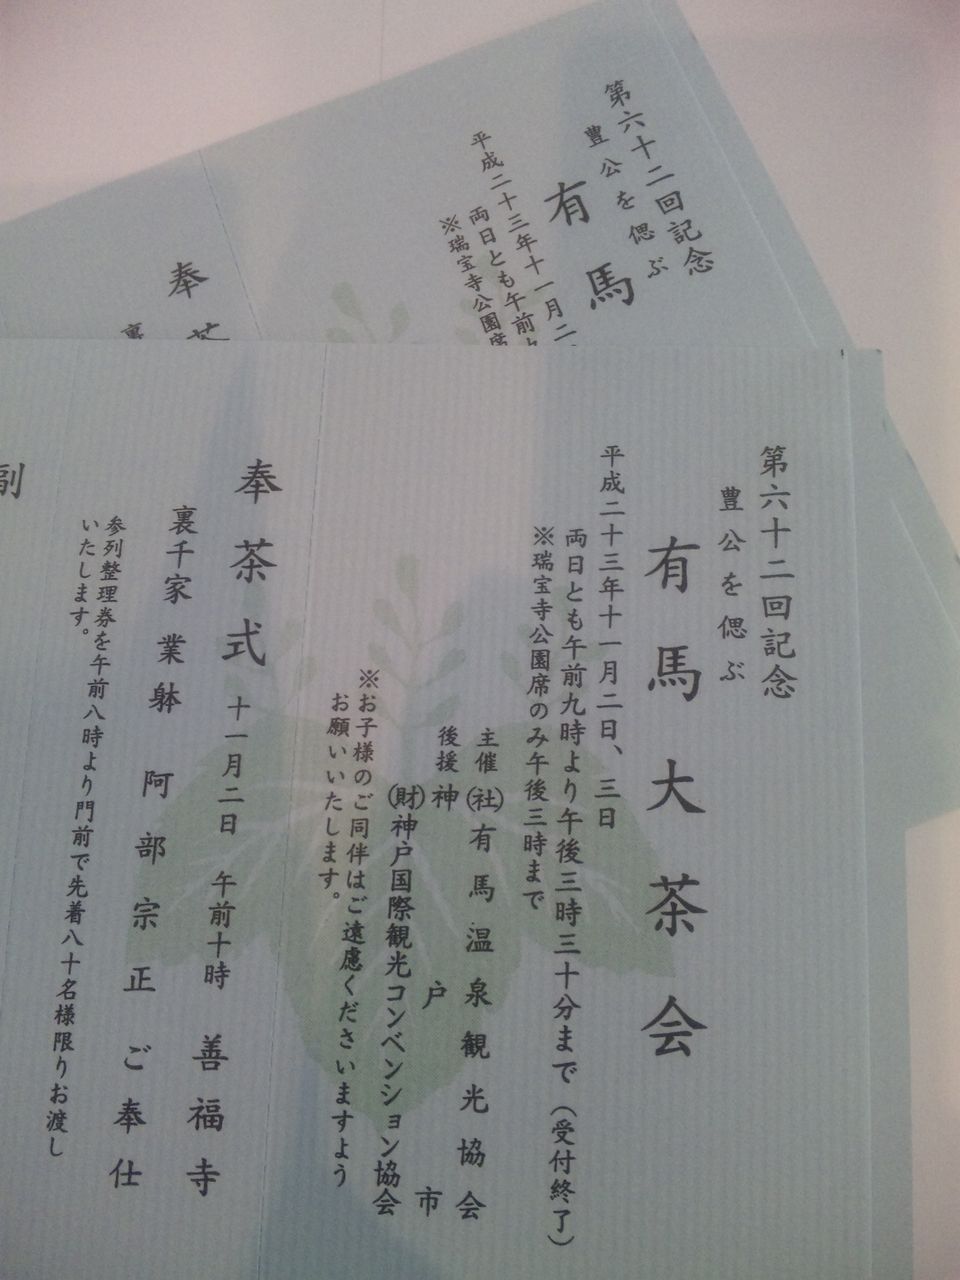 第六十二回記念
豊公を偲ぶ
有馬
平成二十三年十一月二
両日とも午前
※瑞宝寺公園席
奉茶
裏
第六十二回記念
豊公を偲ぶ
有馬大茶会
平成二十三年十一月二日、三日
両日とも午前九時より午後三時三十分まで（受付終了）
※瑞宝寺公園席のみ午後三時まで
主催 (社)有馬温泉観光協会
後援 神戸市
(財)神戸国際観光コンベンション協会
※お子様のご同伴はご遠慮くださいますよう
お願いいたします。
奉茶式 十一月二日 午前十時 善福寺
裏千家 業躰 阿部宗正 ご奉仕
参列整理券を午前八時より門前で先着八十名様限りお渡し
いたします。
副